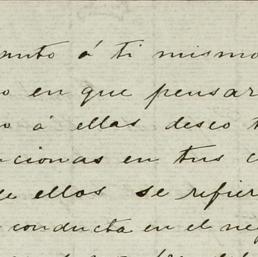 anto á ti mismo
o en que pensar
o á ellas deseo t
cionas en tus c
de ellos se refier
conducta en el neg